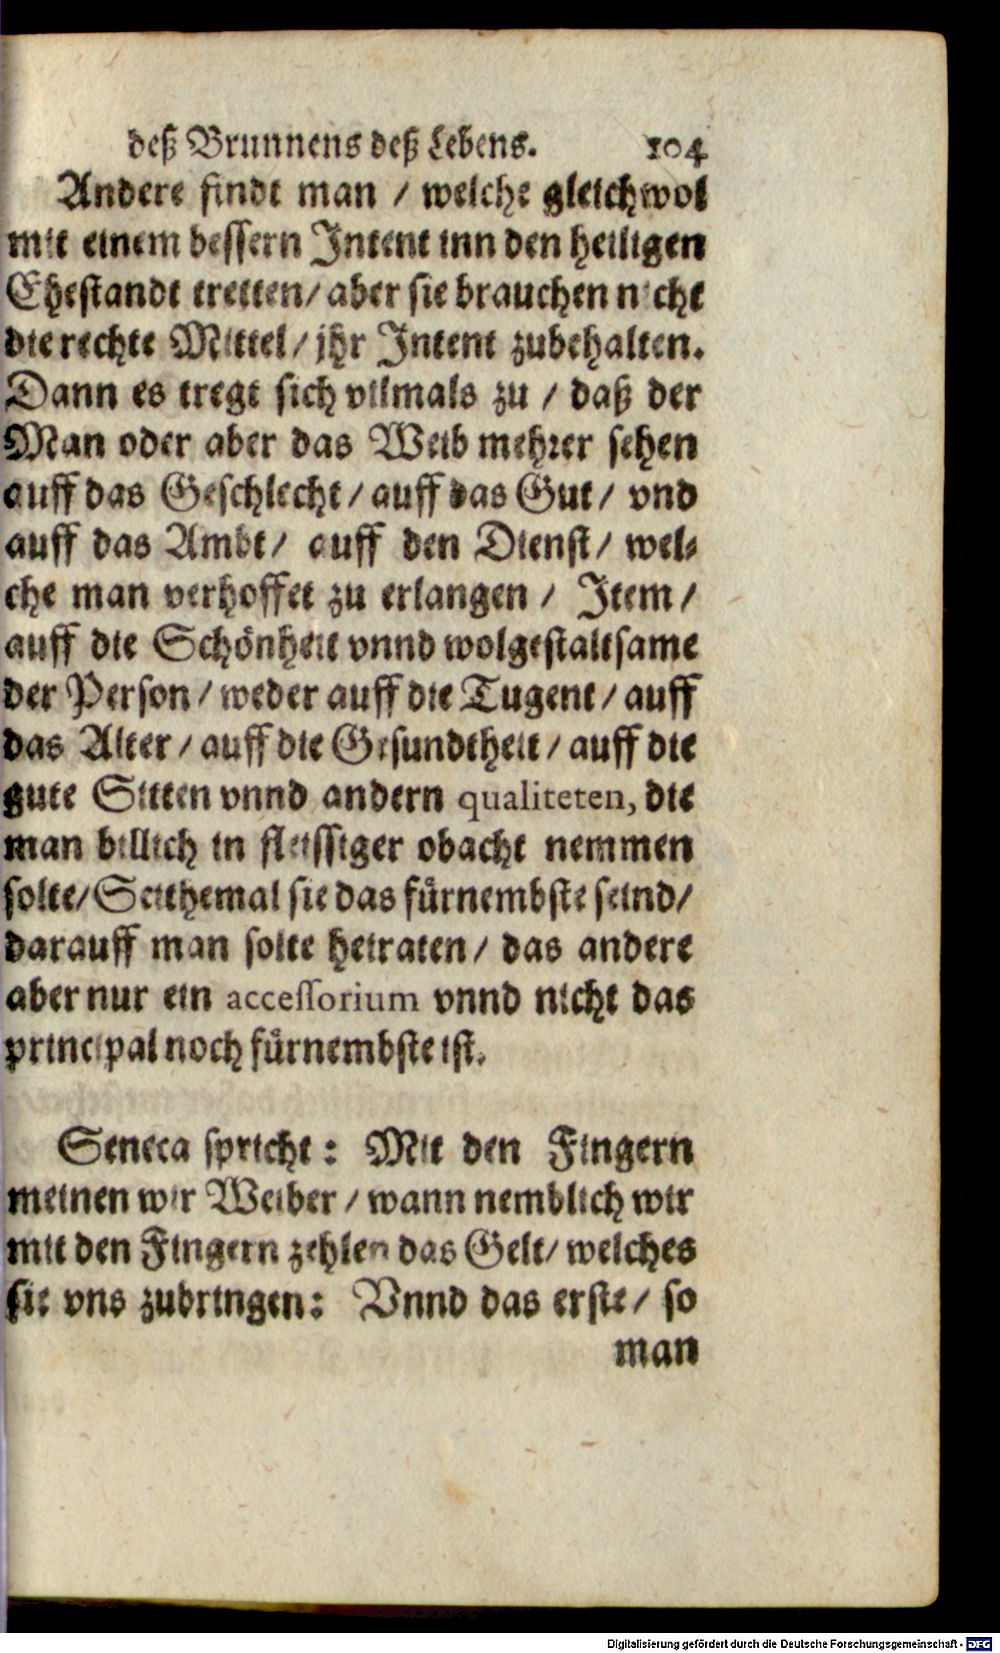 deß Brunnens deß Lebens. 104
Andere findt man / welche gleichwol
mit einem bessern Intent inn den heiligen
Ehestandt tretten/ aber sie brauchen nicht
die rechte Mittel/ jhr Intent zubehalten.
Dann es tregt sich vilmals zu / daß der
Man oder aber das Weib mehrer sehen
auff das Geschlecht/ auff das Gut/ vnd
auff das Ambt/ auff den Dienst/ wel-
che man verhoffet zu erlangen / Item/
auff die Schönheit vnnd wolgestaltsame
der Person/ weder auff die Tugent/ auff
das Alter/ auff die Gesundtheit/ auff die
gute Sitten vnnd andern qualiteten, die
man billich in fleissiger obacht nemmen
solte/ Seithemal sie das fürnembste seind/
darauff man solte heiraten/ das andere
aber nur ein accessorium vnnd nicht das
principal noch fürnembste ist.
Seneca spricht: Mit den Fingern
meinen wir Weiber / wann nemblich wir
mit den Fingern zehlen das Gelt/ welches
sie vns zubringen: Vnnd das erste/ so
man
Digitalisierung gefördert durch die Deutsche Forschungsgemeinschaft - DFG